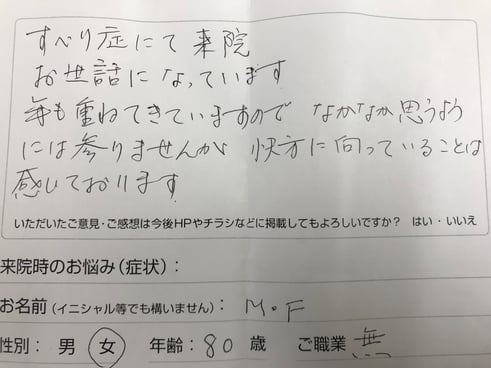 すべり症にて来院
お世話になっています
年も重ねてきていますので なかなか思うよう
には参りませんが 快方に向っていることは
感じております
いただいたご意見・ご感想は今後HPやチラシなどに掲載してもよろしいですか? はい・いいえ
来院時のお悩み(症状):
お名前(イニシャル等でも構いません): M.F
性別: 男 女 年齢: 80 歳 ご職業 無